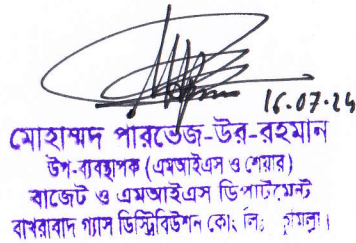 16.07.24
মোহাম্মদ পারভেজ-উর-রহমান
উপ-ব্যবস্থাপক (এমআইএস ও শেয়ার)
বাজেট ও এমআইএস ডিপার্টমেন্ট
বাখরাবাদ গ্যাস ডিস্ট্রিবিউশন কোঃ লিঃ কুমিল্লা।